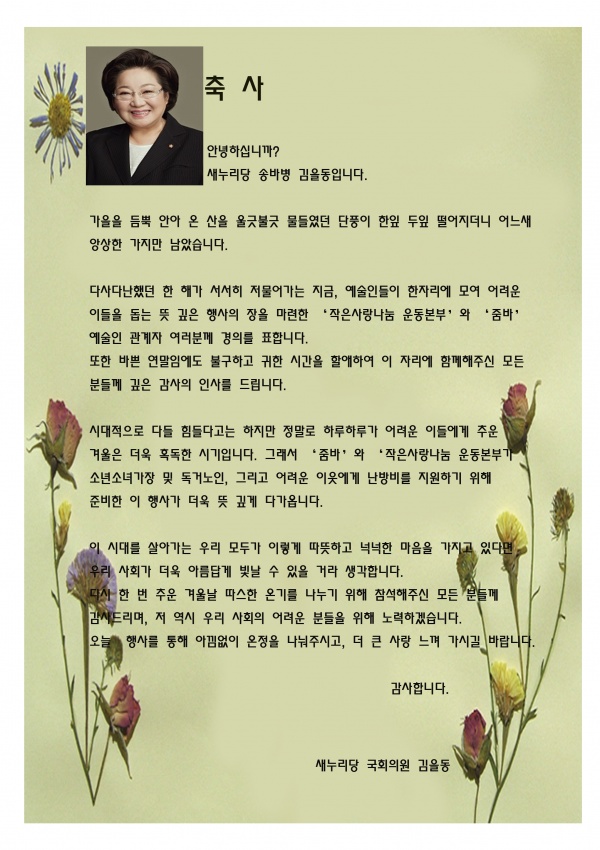 축 사
안녕하십니까?
새누리당 송바병 김을동입니다.
가을을 듬뿍 안아 온 산을 울긋불긋 물들였던 단풍이 한잎 두잎 떨어지더니 어느새
앙상한 가지만 남았습니다.
다사다난했던 한 해가 서서히 저물어가는 지금, 예술인들이 한자리에 모여 어려운
이들을 돕는 뜻 깊은 행사의 장을 마련한 '작은사랑나눔 운동본부'와 '줌바'
예술인 관계자 여러분께 경의를 표합니다.
또한 바쁜 연말임에도 불구하고 귀한 시간을 할애하여 이 자리에 함께해주신 모든
분들께 깊은 감사의 인사를 드립니다.
시대적으로 다들 힘들다고는 하지만 정말로 하루하루가 어려운 이들에게 추운
겨울은 더욱 혹독한 시기입니다. 그래서 '줌바'와 '작은사랑나눔 운동본부가
소년소녀가장 및 독거노인, 그리고 어려운 이웃에게 난방비를 지원하기 위해
준비한 이 행사가 더욱 뜻 깊게 다가옵니다.
이 시대를 살아가는 우리 모두가 이렇게 따뜻하고 넉넉한 마음을 가지고 있다면
우리 사회가 더욱 아름답게 빛날 수 있을 거라 생각합니다.
다시 한 번 추운 겨울날 따스한 온기를 나누기 위해 참석해주신 모든 분들께
감사드리며, 저 역시 우리 사회의 어려운 분들을 위해 노력하겠습니다.
오늘 행사를 통해 아낌없이 온정을 나눠주시고, 더 큰 사랑 느껴 가시길 바랍니다.
감사합니다.
새누리당 국회의원 김을동